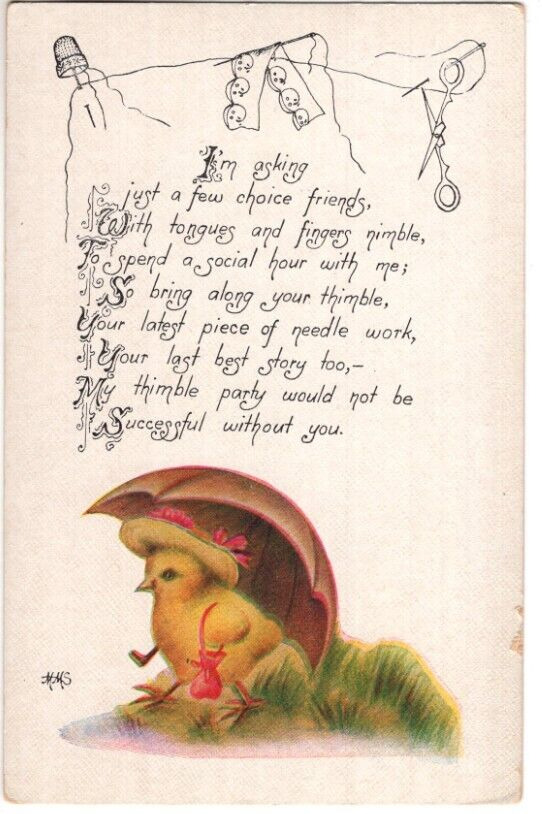 I'm asking
just a few choice friends,
With tongues and fingers nimble,
To spend a social hour with me;
So bring along your thimble,
Your latest piece of needle work,
Your last best story too,—
My thimble party would not be
Successful without you.
MMS